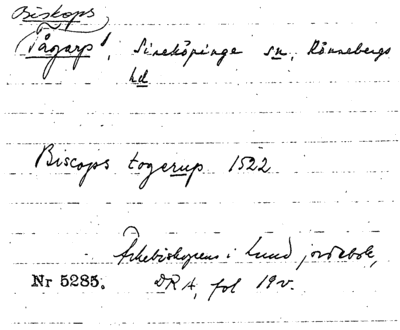 Biskops
Tågarp, Sireköpinge sn, Rönnebergs
hd
Biscops togerup 1522
Ärkebiskopens i Lund jordebok,
Nr 5285. DRA, fol 19v.